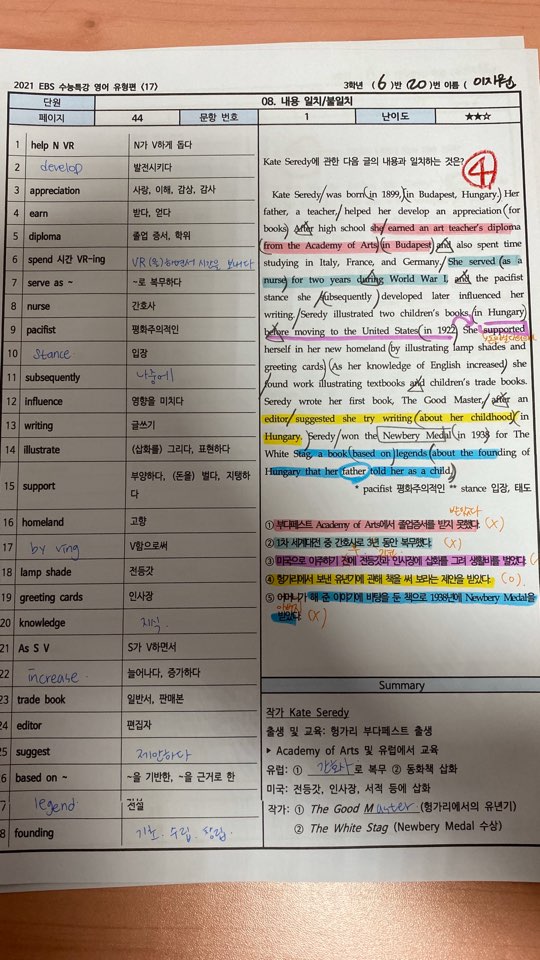 2021 EBS 수능특강 영어 유형편 <17>
3학년 ( 6 )반 ( 20 )번 이름 ( 이지원
단원
08. 내용 일치/불일치
페이지 44 문항 번호 1 난이도 ★★☆
1 help N VR N가 V하게 돕다
2 develop 발전시키다
3 appreciation 사랑, 이해, 감상, 감사
4 earn 받다, 얻다
5 diploma 졸업 증서, 학위
6 spend 시간 VR-ing VR(동)하면서 시간을 보내다
7 serve as ~ ~로 복무하다
8 nurse 간호사
9 pacifist 평화주의적인
10 stance 입장
11 subsequently 나중에
12 influence 영향을 미치다
13 writing 글쓰기
14 illustrate (삽화를) 그리다, 표현하다
15 support 부양하다, (돈을) 벌다, 지탱하다
16 homeland 고향
17 by ving V함으로써
18 lamp shade 전등갓
19 greeting cards 인사장
20 knowledge 지식
21 As S V S가 V하면서
22 increase 늘어나다, 증가하다
23 trade book 일반서, 판매본
24 editor 편집자
25 suggest 제안하다
6 based on ~ ~을 기반한, ~을 근거로 한
7 legend 전설
8 founding 기초, 수립, 창립
Kate Seredy에 관한 다음 글의 내용과 일치하는 것은?
④
Kate Seredy was born in 1899, in Budapest, Hungary. Her
father, a teacher, helped her develop an appreciation for
books. After high school she earned an art teacher's diploma
from the Academy of Arts in Budapest and also spent time
studying in Italy, France, and Germany. She served as a
nurse for two years during World War I, and the pacifist
stance she subsequently developed later influenced her
writing. Seredy illustrated two children's books in Hungary
before moving to the United States in 1922. She supported
herself in her new homeland by illustrating lamp shades and
greeting cards. As her knowledge of English increased, she
found work illustrating textbooks and children's trade books.
Seredy wrote her first book, The Good Master, after an
editor suggested she try writing about her childhood in
Hungary. Seredy won the Newbery Medal in 1938 for The
White Stag, a book based on legends about the founding of
Hungary that her father told her as a child.
* pacifist 평화주의적인 ** stance 입장, 태도
받았다
① 부다페스트 Academy of Arts에서 졸업증서를 받지 못했다. (X)
② 1차 세계대전 중 간호사로 3년 동안 복무했다. (X)
③ 미국으로 이주하기 전에 전등갓과 인사장에 삽화를 그려 생활비를 벌었다.
④ 헝가리에서 보낸 유년기에 관해 책을 써 보라는 제안을 받았다. (O)
⑤ 어머니가 해 준 이야기에 바탕을 둔 책으로 1938년에 Newbery Medal을
아버지
받았다. (X)
Summary
작가 Kate Seredy
출생 및 교육: 헝가리 부다페스트 출생
▶ Academy of Arts 및 유럽에서 교육
유럽: ① 간호사로 복무 ② 동화책 삽화
미국: 전등갓, 인사장, 서적 등에 삽화
작가: ① The Good Master (헝가리에서의 유년기)
② The White Stag (Newbery Medal 수상)